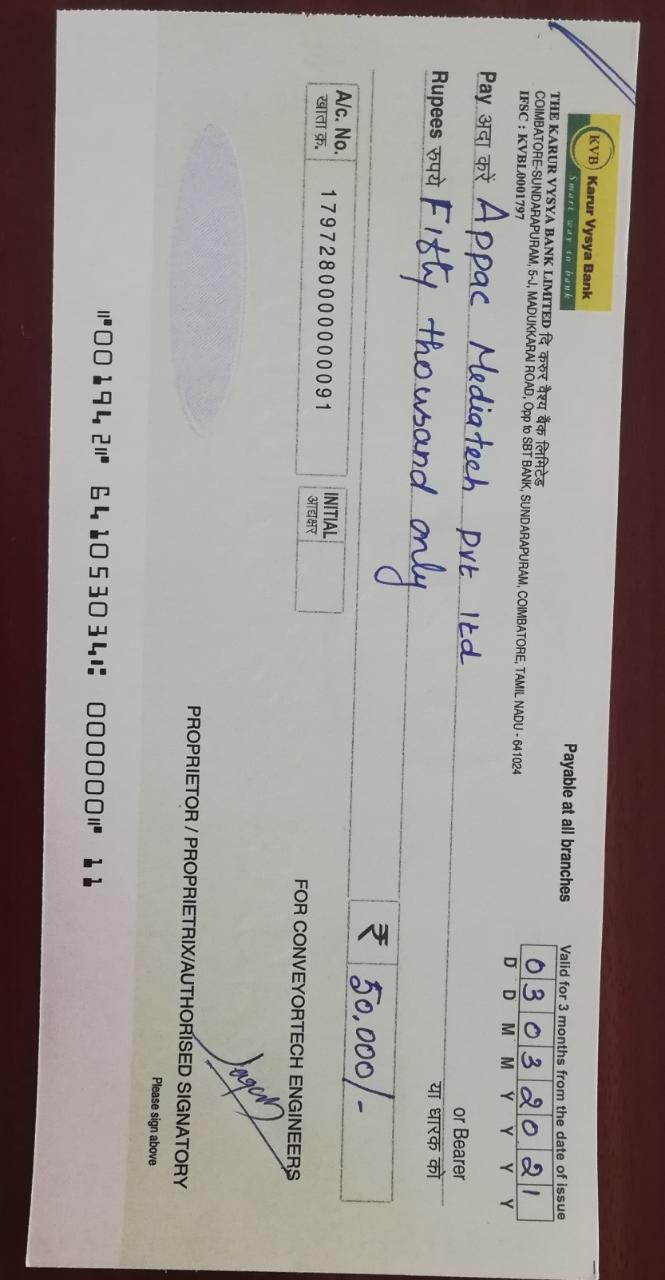 KVB Karur Vysya Bank
Smart way to bank
THE KARUR VYSYA BANK LIMITED दि करूर वैश्य बैंक लिमिटेड
COIMBATORE-SUNDARAPURAM, 5-J, MADUKKARAI ROAD, Opp to SBT BANK, SUNDARAPURAM, COIMBATORE, TAMIL NADU - 641024
IFSC : KVBL0001797
Payable at all branches
Valid for 3 months from the date of issue
0 3 0 3 2 0 2 1
D D M M Y Y Y Y
Pay अदा करें Appac Mediatech Pvt ltd
or Bearer
या धारक को
Rupees रुपये Fifty thousand only
₹ 50,000/-
A/c. No.
खाता क्र.
1797280000000091
INITIAL
आद्यक्षर
FOR CONVEYORTECH ENGINEERS
PROPRIETOR / PROPRIETRIX/AUTHORISED SIGNATORY
Please sign above
⑈001942⑈ 641053034⑆ 000000⑈ 11